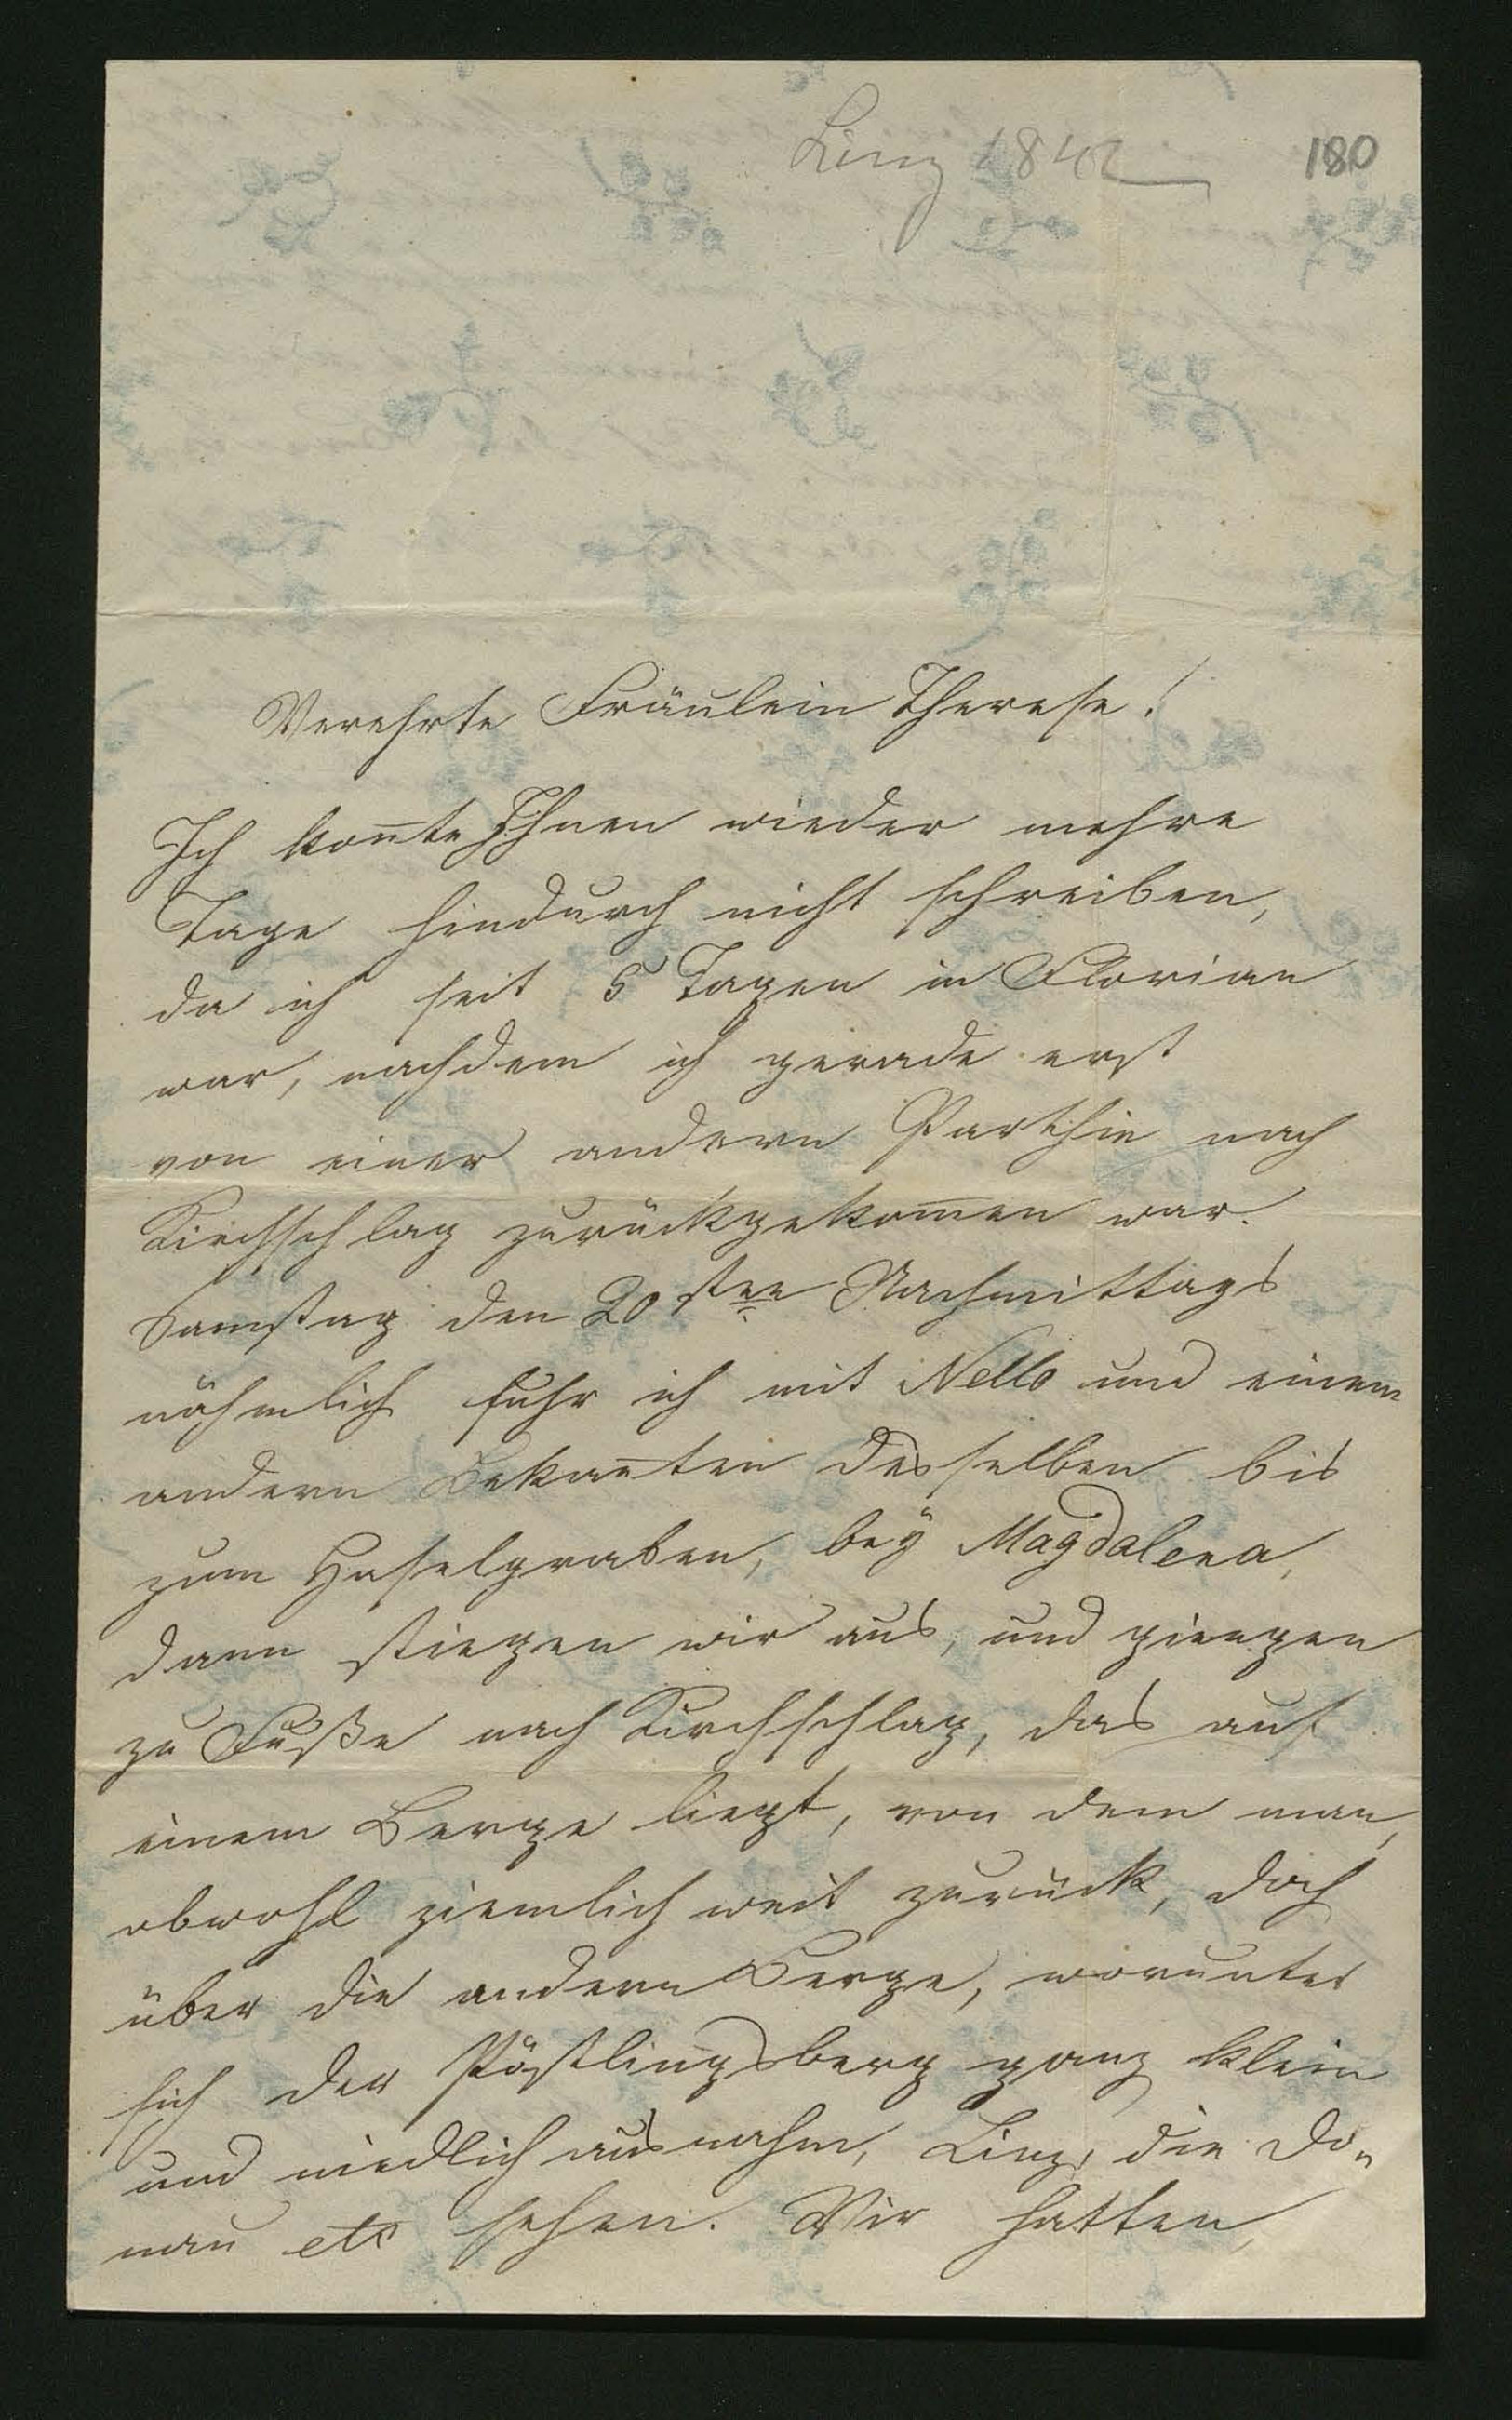 Linz 1842
180
Verehrte Fräulein Therese!
Ich kon̄te Ihnen wieder mehre
Tage hindurch nicht schreiben,
da ich seit 5 Tagen in Florian
war, nachdem ich gerade erst
von einer andern Parthie nach
Kirchschlag zurückgekom̄en war.
Samstag den 20sten Nachmittags
nähmlich fuhr ich mit Nello und einem
andern Bekan̄ten desselben bis
zum Haselgraben, beÿ Magdalena,
dann stiegen wir aus, und giengen
zu Fuße nach Kirchschlag, das auf
einem Berge liegt, von dem man,
obwohl ziemlich weit zurück, doch
über die andern Berge, worunter
sich der Pöstlingsberg ganz klein
und niedlich ausnahm, Linz, die Do„
nau etc sehen. Wir hatten